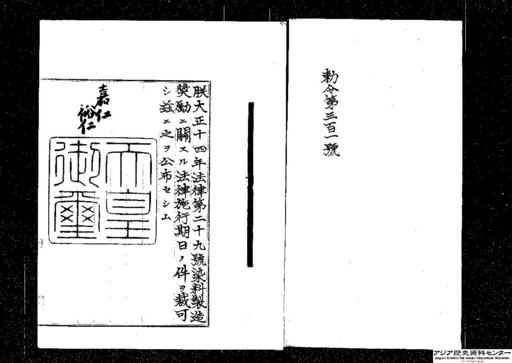 勅令第三百一號
朕大正十四年法律第二十九號染料製造
奬勵ニ關スル法律施行期日ノ件ヲ裁可
シ茲ニ之ヲ公布セシム
嘉仁
裕仁
天皇
御璽
アジア歴史資料センター
Japan Center for Asian Historical Records